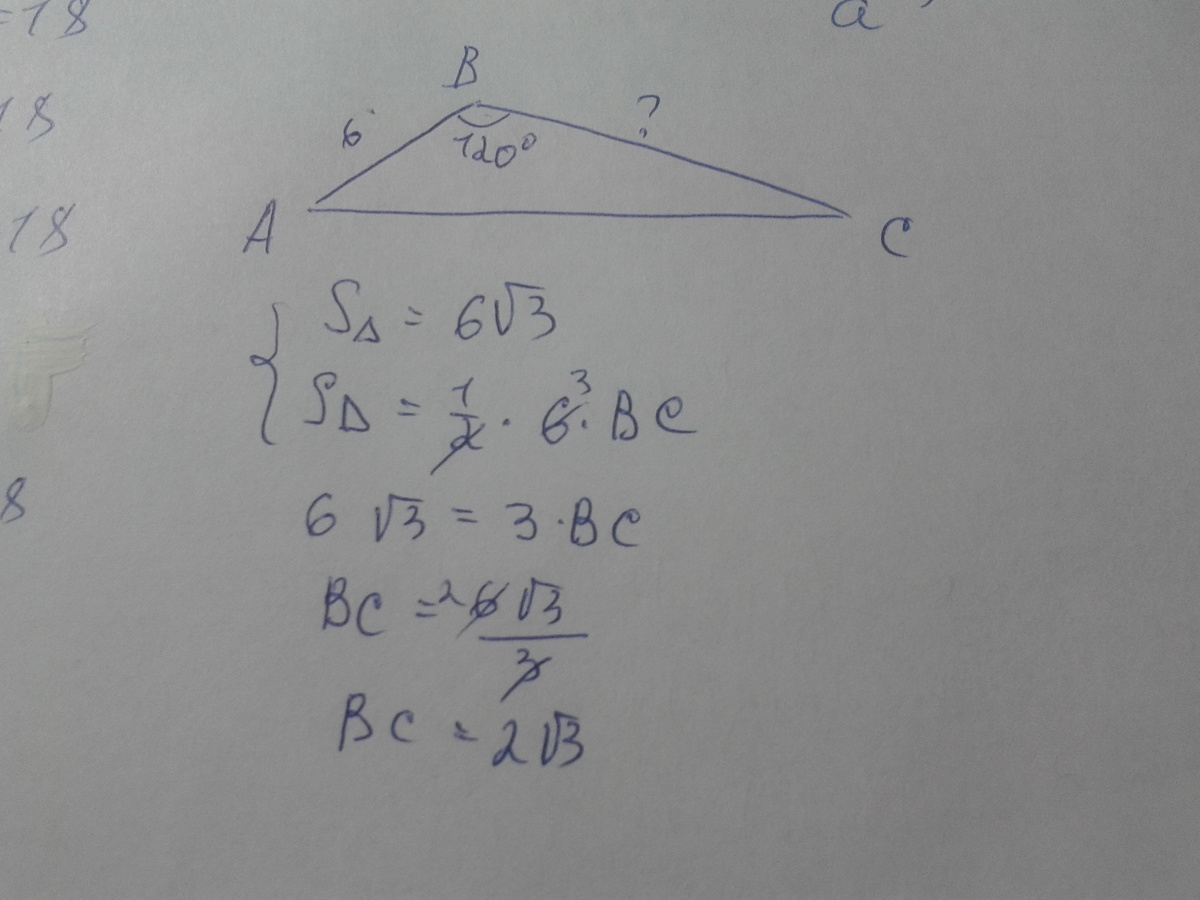 =18
a
B
18
6
?
120°
18
A
C
S△ = 6√3
S△ = 1/2 · 6 3 · BC
8
6 √3 = 3 · BC
BC = 2 6√3/3
BC = 2√3